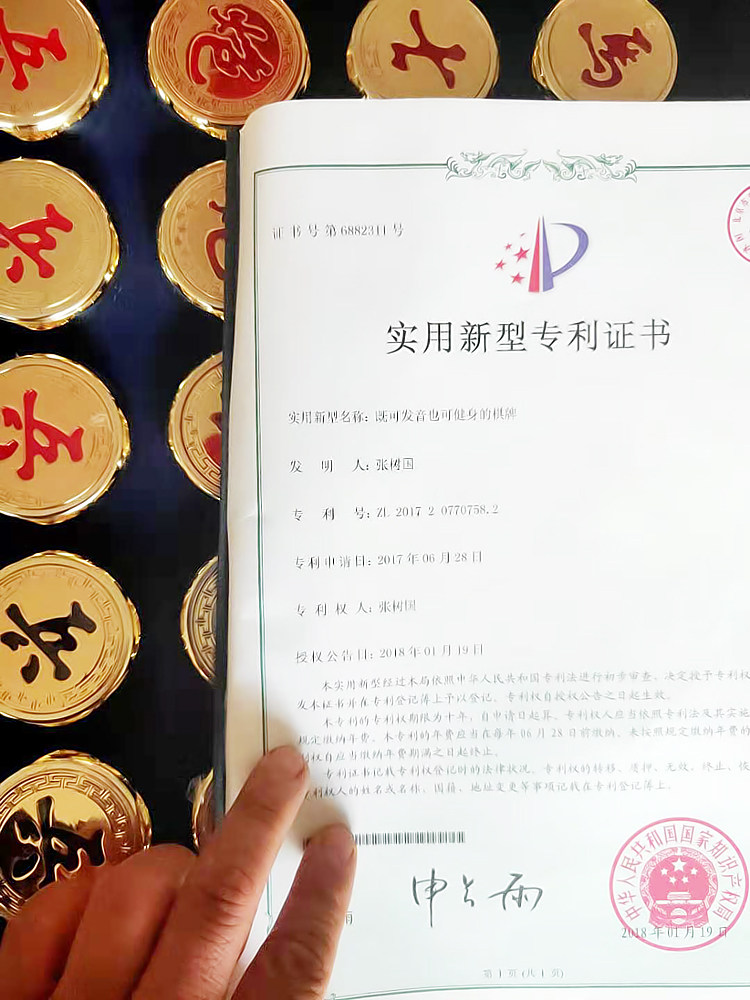 兵
炮
士
馬
兵
炮
兵
兵
兵
证书号第6882311号
实用新型专利证书
实用新型名称：既可发音也可健身的棋牌
发明人：张树国
专利号：ZL 2017 2 0770758.2
专利申请日：2017年06月28日
专利权人：张树国
授权公告日：2018年01月19日
本实用新型经过本局依照中华人民共和国专利法进行初步审查，决定授予专利权
发本证书并在专利登记簿上予以登记。专利权自授权公告之日起生效。
本专利的专利权期限为十年，自申请日起算。专利权人应当依照专利法及其实施
规定缴纳年费。本专利的年费应当在每年06月28日前缴纳。未按照规定缴纳年费的
利权自应当缴纳年费期满之日起终止。
专利证书记载专利权登记时的法律状况。专利权的转移、质押、无效、终止、恢
利权人的姓名或名称、国籍、地址变更等事项记载在专利登记簿上。
申长雨
雨
中华人民共和国国家知识产权局
2018年01月19日
第1页（共1页）